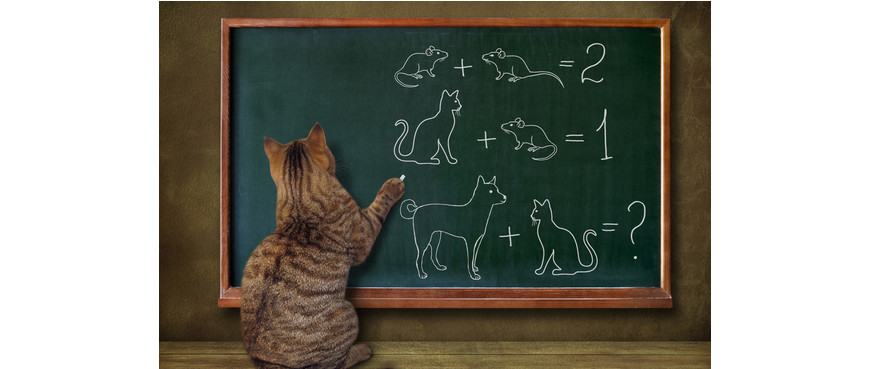 + = 2
+ = 1
+ = ?